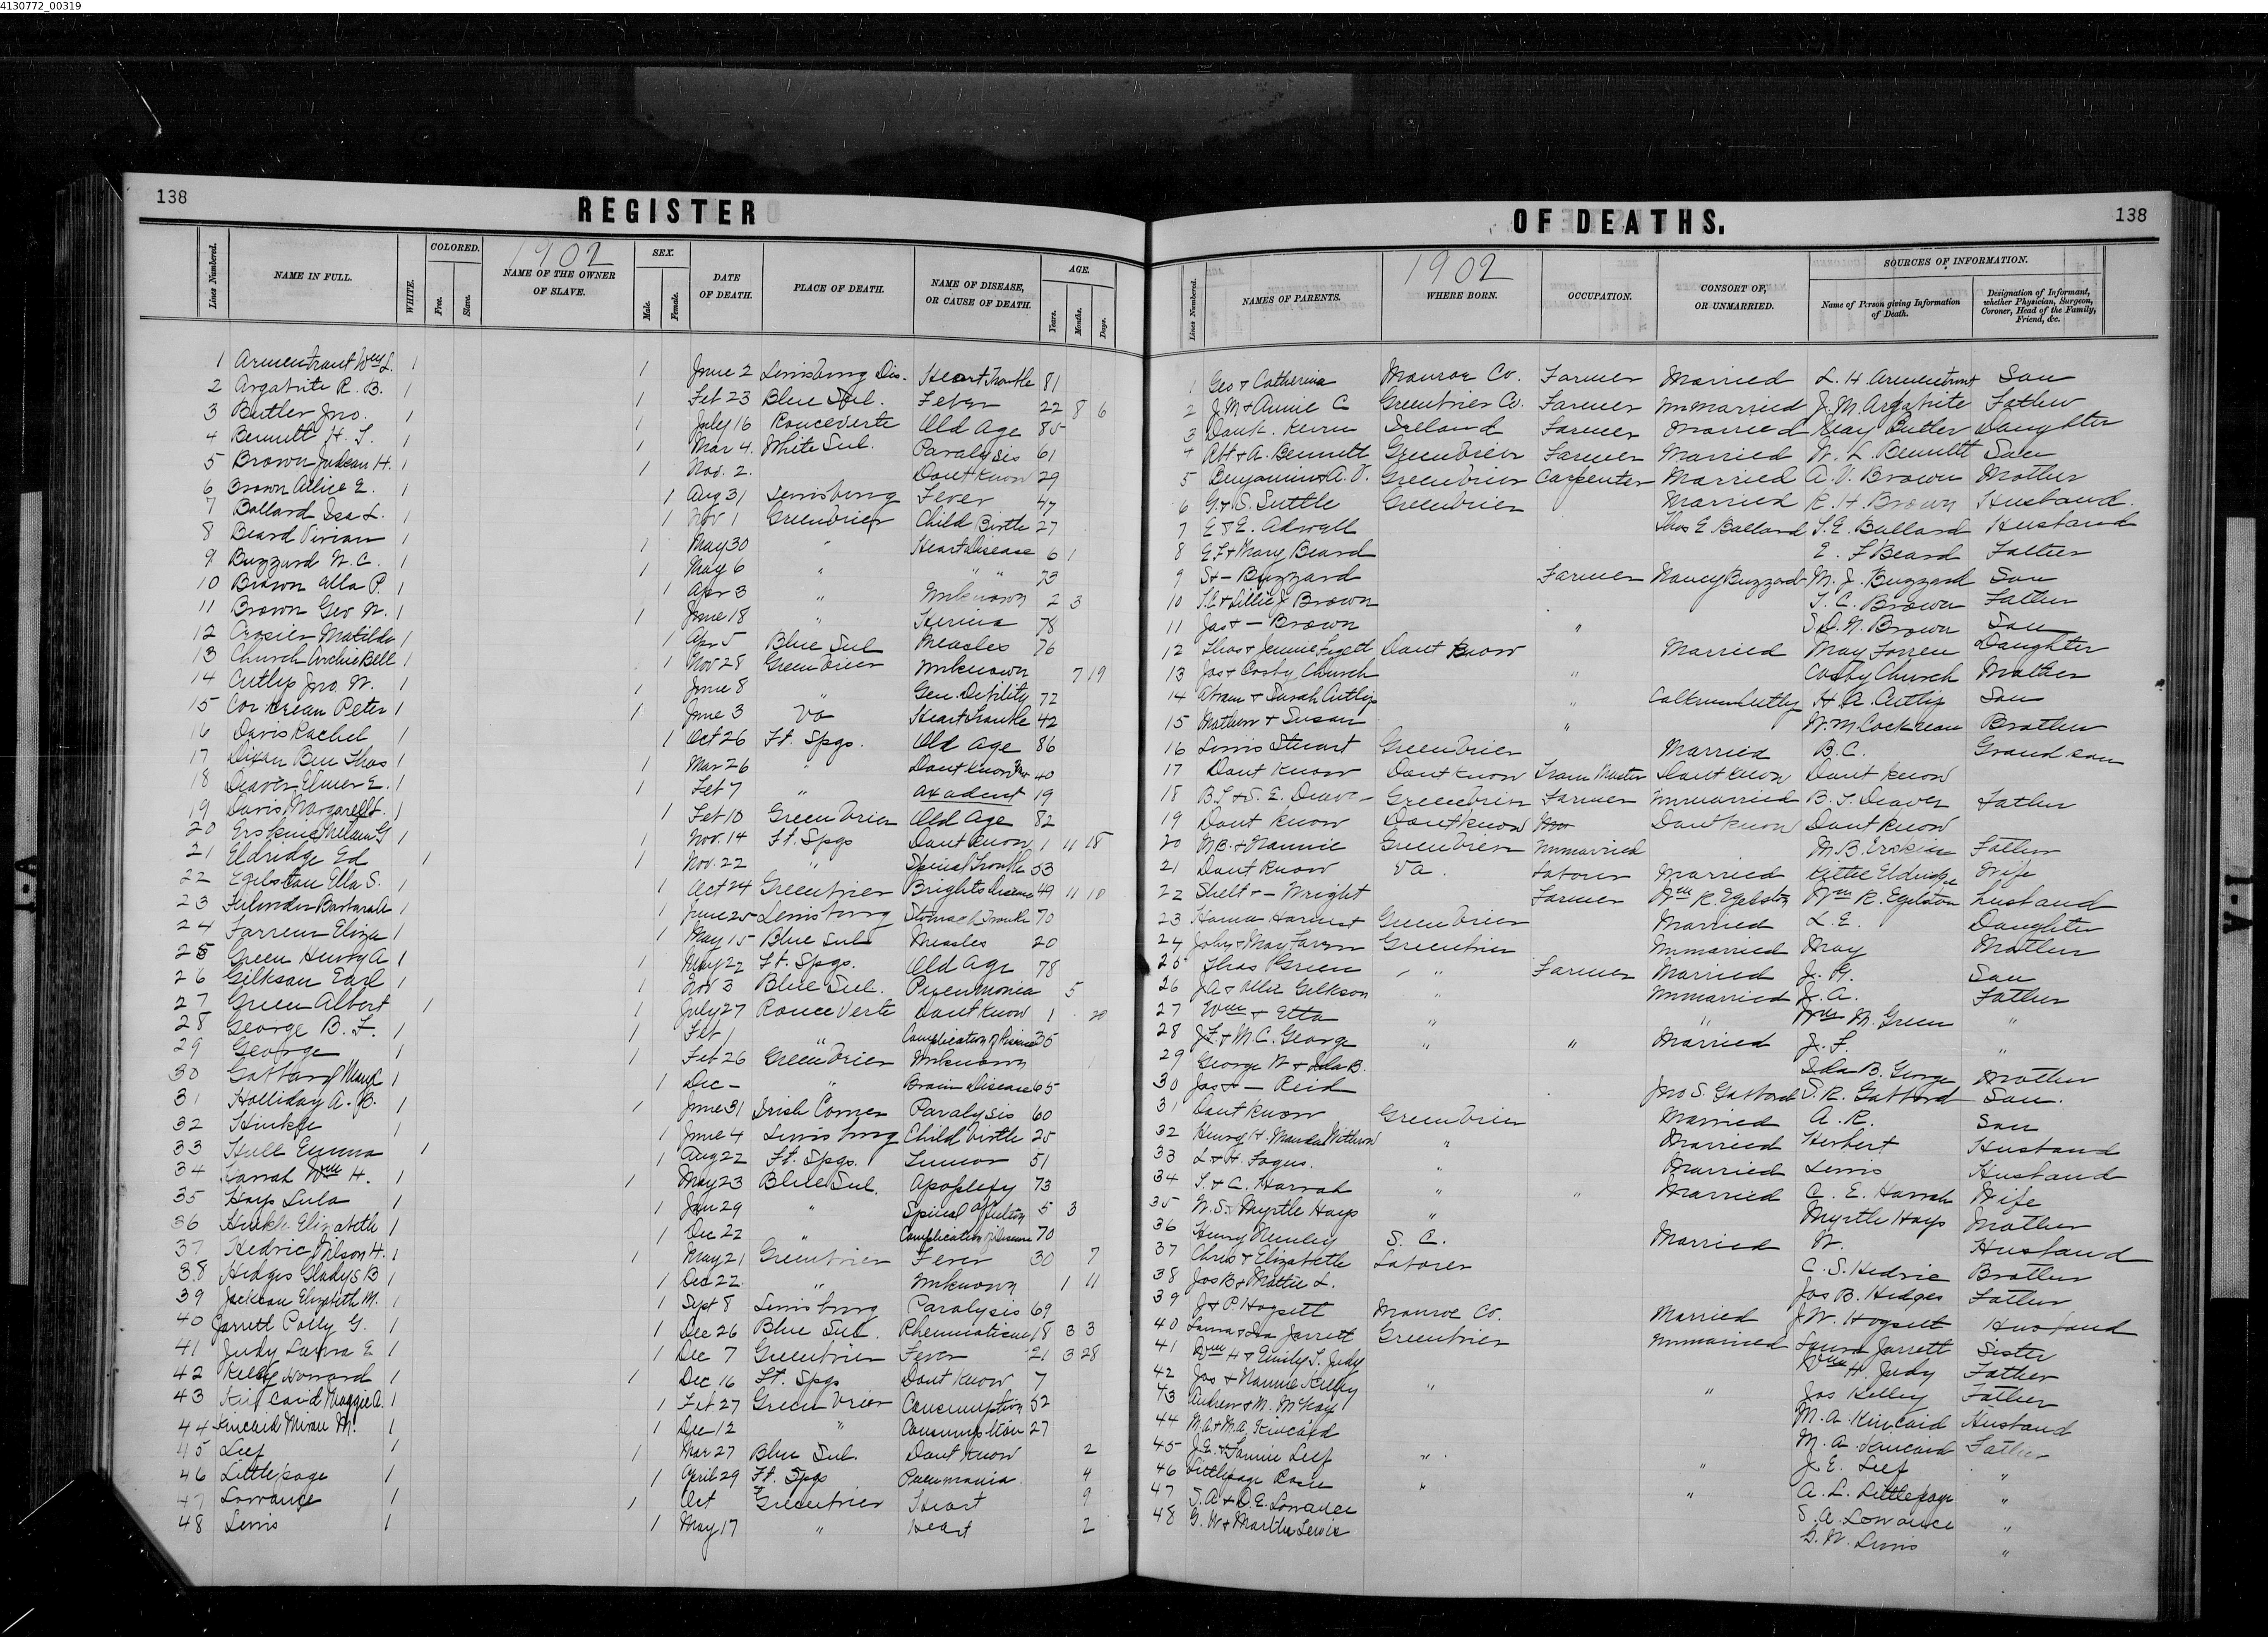 4130772_00319
138
REGISTER
1902
Lines Numbered. NAME IN FULL. WHITE. COLORED. Free. Slave. NAME OF THE OWNER OF SLAVE. SEX. Male. Female. DATE OF DEATH. PLACE OF DEATH. NAME OF DISEASE, OR CAUSE OF DEATH. AGE. Years. Months. Days.
1 Armentrout Wm L. 1 1 June 2 Lewisburg Dis. Heart Trouble 81
2 Argabrite R. B. 1 1 Feb 23 Blue Sul. Fever 22 8 6
3 Butler Jno. 1 1 July 16 Ronceverte Old Age 85
4 Bennett H. T. 1 1 Mar 4. White Sul. Paralysis 61
5 Brown Judson H. 1 1 Nov. 2. Dont Know 29
6 Brown Allice E. 1 1 Aug 31 Lewisburg Fever 47
7 Ballard Isa L. 1 1 Nov 1 Greenbrier Child Birth 27
8 Beard Vivian 1 1 May 30 " Heart Disease 6 1
9 Buzzard W. C. 1 1 May 6 " " " 73
10 Brown Ella P. 1 1 Apr 3 " Unknown 2 3
11 Brown Geo W. 1 1 June 18 " 78
12 Crosier Matilda 1 1 Apr 5 Blue Sul Measles 76
13 Church Archie Bell 1 1 Nov 28 Greenbrier Unknown 7 19
14 Cutlip Jno W. 1 1 June 8 " Gen. Debility 72
15 Corkrean Peter 1 1 June 3 Va Heart Trouble 42
16 Davis Rachel 1 1 Oct 26 Ft. Spgs. Old Age 86
17 Dixon Ben Thos 1 1 Mar 26 " Dont Know 40
18 Deaver Elmer E. 1 1 Feb 7 " Axadent 19
19 Davis Margarett 1 1 Feb 10 Greenbrier Old Age 82
20 Erskine G 1 1 Nov. 14 Ft. Spgs Dont Know 1 11 18
21 Eldridge Ed 1 1 Nov. 22 " Spinal Trouble 53
22 Egelston Ella S. 1 1 Oct 24 Greenbrier Brights Disease 49 11 10
23 Barbara A 1 1 June 25 Lewisburg Stomach Trouble 70
24 Farren Eliza 1 1 May 15 Blue Sul Measles 20
25 Green Henry A 1 1 May 22 Ft. Spgs. Old Age 78
26 Gilkson Earl 1 1 Nov 3 Blue Sul. Pneumonia 5
27 Green Albert 1 1 July 27 Ronceverte Dont Know 1 20
28 George B. F. 1 1 Feb 1 " Complication of Disease 35
29 George 1 1 Feb 26 Greenbrier Unknown 1
30 Gabbard Mary C 1 1 Dec - " Brain Disease 65
31 Holliday A. B. 1 1 June 31 Irish Corner Paralysis 60
32 Hinkle 1 1 June 4 Lewisburg Child birth 25
33 Hull Emma 1 1 Aug 22 Ft. Spgs. Tumor 51
34 Harrah Wm H. 1 1 May 23 Blue Sul. Apoplexy 73
35 Hays Lula 1 1 Jan 29 " Spinal 5 3
36 Elizabeth 1 1 Dec 22 " Complication of Disease 70
37 Hedric Wilson H. 1 1 May 21 Greenbrier Fever 30 7
38 Hedges Gladys B 1 1 Dec 22. " Unknown 1 11
39 Jackson Elizabeth M. 1 1 Sept 8 Lewisburg Paralysis 69
40 Jarrett Polly G. 1 1 Dec 26 Blue Sul. Rheumatism 18 3 3
41 Judy Laura E 1 1 Dec 7 Greenbrier Fever 21 3 28
42 Kelly Howard 1 1 Dec 16 Ft. Spgs Dont Know 7
43 Kincaid Maggie A. 1 1 Feb 27 Greenbrier Consumption 52
44 Kincaid M. 1 1 Dec 12 " Consumption 27
45 Leef 1 1 Mar 27 Blue Sul. Dont Know 2
46 Littlepage 1 1 April 29 Ft. Spgs Pneumonia 4
47 Lowance 1 1 Oct Greenbrier Heart 9
48 Lewis 1 1 May 17 " Heart 2
OF DEATHS.
138
1902
Lines Numbered. NAMES OF PARENTS. WHERE BORN. OCCUPATION. CONSORT OF, OR UNMARRIED. SOURCES OF INFORMATION. Name of Person giving Information of Death. Designation of Informant, whether Physician, Surgeon, Coroner, Head of the Family, Friend, &c.
1 Geo & Catherine Monroe Co. Farmer Married L. H. Armentrout Son
2 J. M & Annie C Greenbrier Co. Farmer Unmarried J. M. Argabrite Father
3 Dont. Ireland Farmer Married May Butler Daughter
4 Abt & A. Bennett Greenbrier Farmer Married W. L. Bennett Son
5 Benjamin & A. V. Greenbrier Carpenter Married A. V. Brown Mother
6 G. & S. Suttle Greenbrier Married R. H Brown Husband.
7 E & E. Adwell Thos E Ballard T. E. Ballard Husband
8 E. F & Mary Beard E. F Beard Father
9 S & - Buzzard Farmer Nancy Buzzard M. J. Buzzard Son
10 T. C & Lillie J Brown T. C. Brown Father
11 Jas & - Brown " S. D. W. Brown Son
12 Thos & Jennie Dont Know Married May Farren Daughter
13 Jas & Cosby Church " Cosby Church Mother
14 Abram & Sarah Cutlip " H. A. Cutlip Son
15 Mathew & Susan " W. M Cockrean Brother
16 Lewis Stuart Greenbrier Married B. C. Grand son
17 Dont Know Dont Know Train Master Dont Know Dont know
18 B. T. & S. E. Deaver Greenbrier Farmer Unmarried B. T. Deaver Father
19 Dont know Dont know Dont know Dont know
20 M B. & Nannie Greenbrier Unmarried M. B. Erskine Father
21 Dont Know Va. Laborer Married Kittie Eldridge Wife
22 Shelt & - Wright Farmer Wm R. Egelston Wm R. Egelston husband
23 Greenbrier Married L. E. Daughter
24 & May Farren Greenbrier Unmarried May Mother
25 Thos Green " Farmer Married J. W. Son
26 J. A & Ollie Gilkson " Unmarried J. A. Father
27 Wm & Etta " " Wm M. Green "
28 J. F. & M. C. George " " Married J. F. "
29 George W & Ida B. Ida B. George Mother
30 Jas & - Reid Jno S. Gabbard S. R. Gabbard Son.
31 Dont know Greenbrier Married A. R. Son
32 Henry H. " Married Herbert Husband
33 L & H. Fogus. " Married Lewis Husband
34 T. & C. Harrah " " Married C. E. Harrah Wife
35 W. S. & Myrtle Hays " Myrtle Hays Mother
36 Henry S. C. Married W. Husband
37 Chris & Elizabeth Laborer C. S. Hedric Brother
38 Jos B & Mattie L. Jos B. Hedges Father
39 J & P Hogsett Monroe Co. Married J. W. Hogsett Husband
40 & Ida Jarrett Greenbrier Unmarried Laura Jarrett Sister
41 Wm H & Emily T. Judy Wm H. Judy Father
42 Jos & Nannie Kelley " " Jos Kelley Father
43 Andrew & M. McKay M. A. Kincaid Husband
44 M. A. & M. A. Kincaid M. A. Kincaid Father
45 J. E. & Fannie Leef " " J. E. Leef "
46 Littlepage " " A. L. Littlepage "
47 S. A. & D. E. Lowance S. A. Lowance "
48 G. W & Martha Lewis G. W. Lewis "
1-A